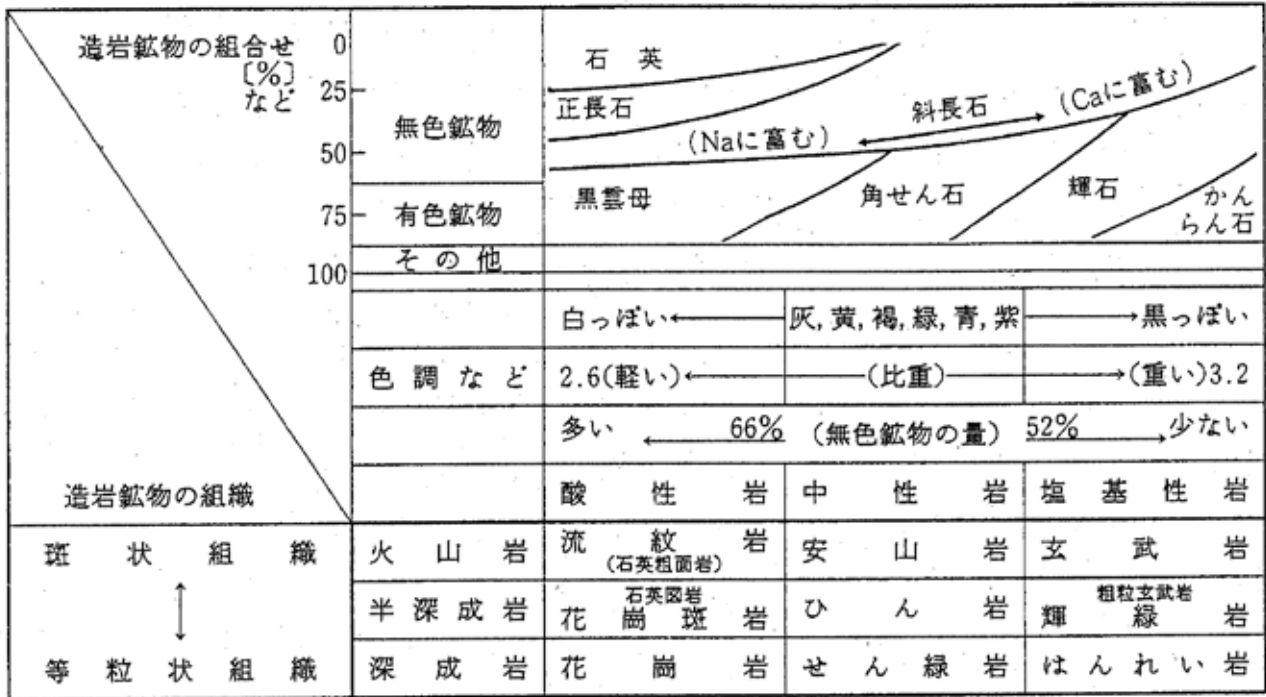 造岩鉱物の組合せ
〔%〕
など
0
25
50
75
100
無色鉱物
有色鉱物
その他
石英
正長石
(Naに富む)
斜長石
(Caに富む)
黒雲母
角せん石
輝石
かん
らん石
白っぽい←
灰,黄,褐,緑,青,紫
→黒っぽい
色調など
2.6(軽い)←
(比重)
→(重い)3.2
多い ← 66% (無色鉱物の量) 52% → 少ない
造岩鉱物の組織
酸性岩
中性岩
塩基性岩
斑状組織
火山岩
流紋岩
(石英粗面岩)
安山岩
玄武岩
半深成岩
石英図岩
花崗斑岩
ひん岩
粗粒玄武岩
輝緑岩
等粒状組織
深成岩
花崗岩
せん緑岩
はんれい岩